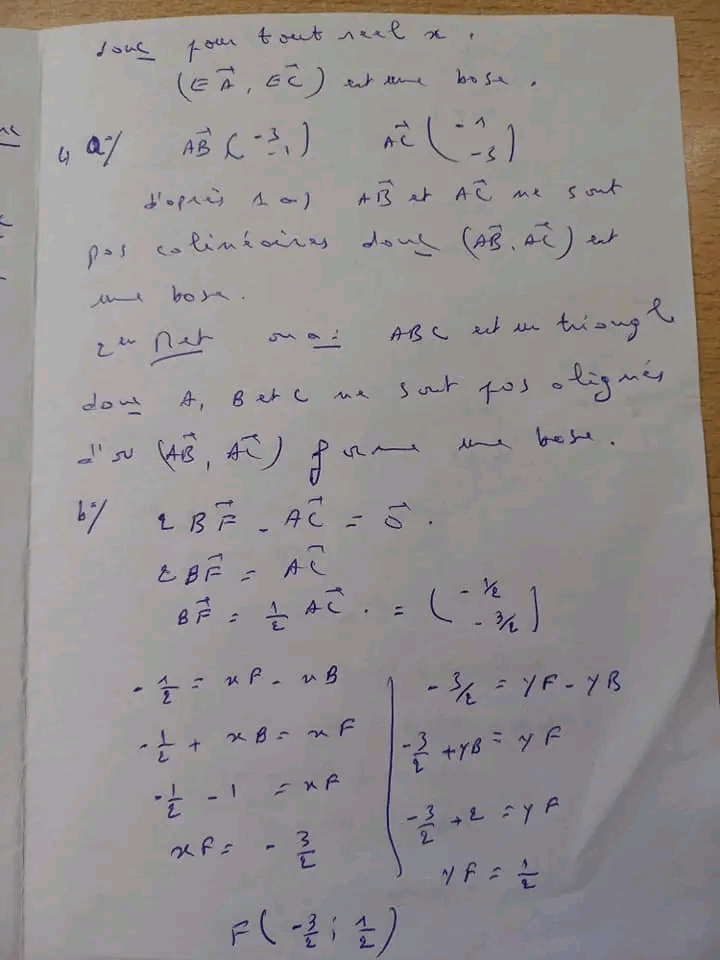 donc pour tout réel x.
(EA⃗, EC⃗) est une base.
4, a°/ AB⃗ (-3 -1) AC⃗ (-1 -3)
d'après 1 a) AB⃗ et AC⃗ ne sont
pas colinéaires donc (AB⃗, AC⃗) est
une base.
2em Met on a: ABC est un triangle
donc A, B et C ne sont pas alignés
d'où (AB⃗, AC⃗) forme une base.
b°/ 2 BF⃗ - AC⃗ = 0⃗.
2BF⃗ = AC⃗
BF⃗ = 1/2 AC⃗. = (-1/2 -3/2)
-1/2 = xF - xB
-1/2 + xB = xF
-1/2 - 1 = xF
xF = -3/2
-3/2 = yF - yB
-3/2 + yB = yF
-3/2 + 2 = yF
yF = 1/2
F(-3/2 ; 1/2)